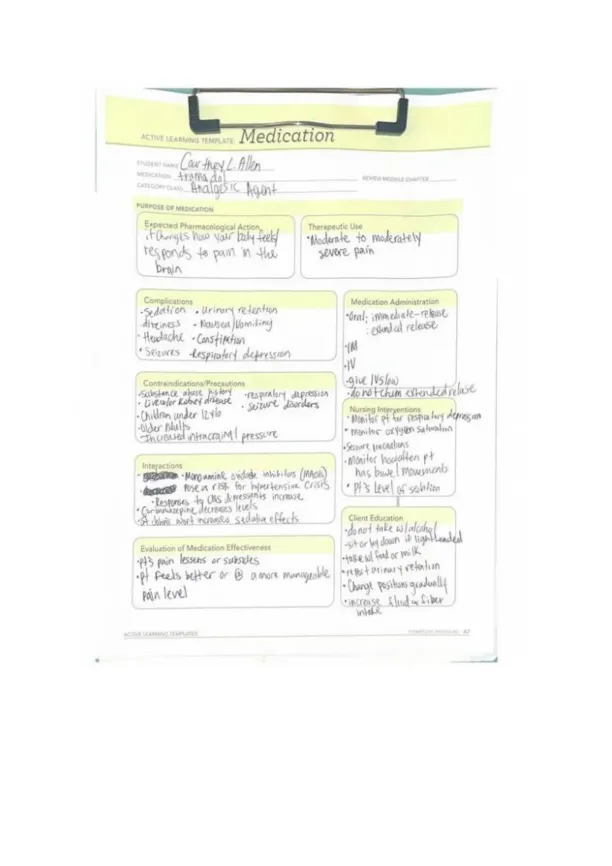 ACTIVE LEARNING TEMPLATE: Medication
STUDENT NAME Courtney L. Allen
MEDICATION tramadol
REVIEW MODULE CHAPTER
CATEGORY CLASS Analgesic Agent
PURPOSE OF MEDICATION
Expected Pharmacological Action
it changes how your body feels/
responds to pain in the
brain
Therapeutic Use
•Moderate to moderately
severe pain
Complications
•Sedation • Urinary retention
•dizziness • Nausea/Vomiting
• Headache • Constipation
• Seizures •Respiratory depression
Medication Administration
•Oral; immediate-release
: extended release
•IM
•IV
•give IV slow
•do not chew extended release
Contraindications/Precautions
•Substance abuse history •respiratory depression
• Liver or Kidney disease • seizure disorders
•Children under 12 y/o
•Older Adults
•Increased intracranial pressure
Nursing Interventions
• Monitor pt for respiratory depression
• monitor oxygen saturation
•Seizure precautions
•monitor how often pt
has bowel movements
• Pt's level of sedation
Interactions
•Monoamine oxidate inhibitors (MAOIs)
pose a risk for hypertensive crisis
• Responses to CNS depressants increase
•Carbamazepine decreases levels
•St. John's wort increases sedative effects
Client Education
•do not take w/alcohol
•sit or lay down if lightheaded
•take w/ food or milk
•report urinary retention
• Change positions gradually
•increase fluid or fiber
intake
Evaluation of Medication Effectiveness
•pt's pain lessens or subsides
•pt feels better or @ a more manageable
pain level
ACTIVE LEARNING TEMPLATES
A7